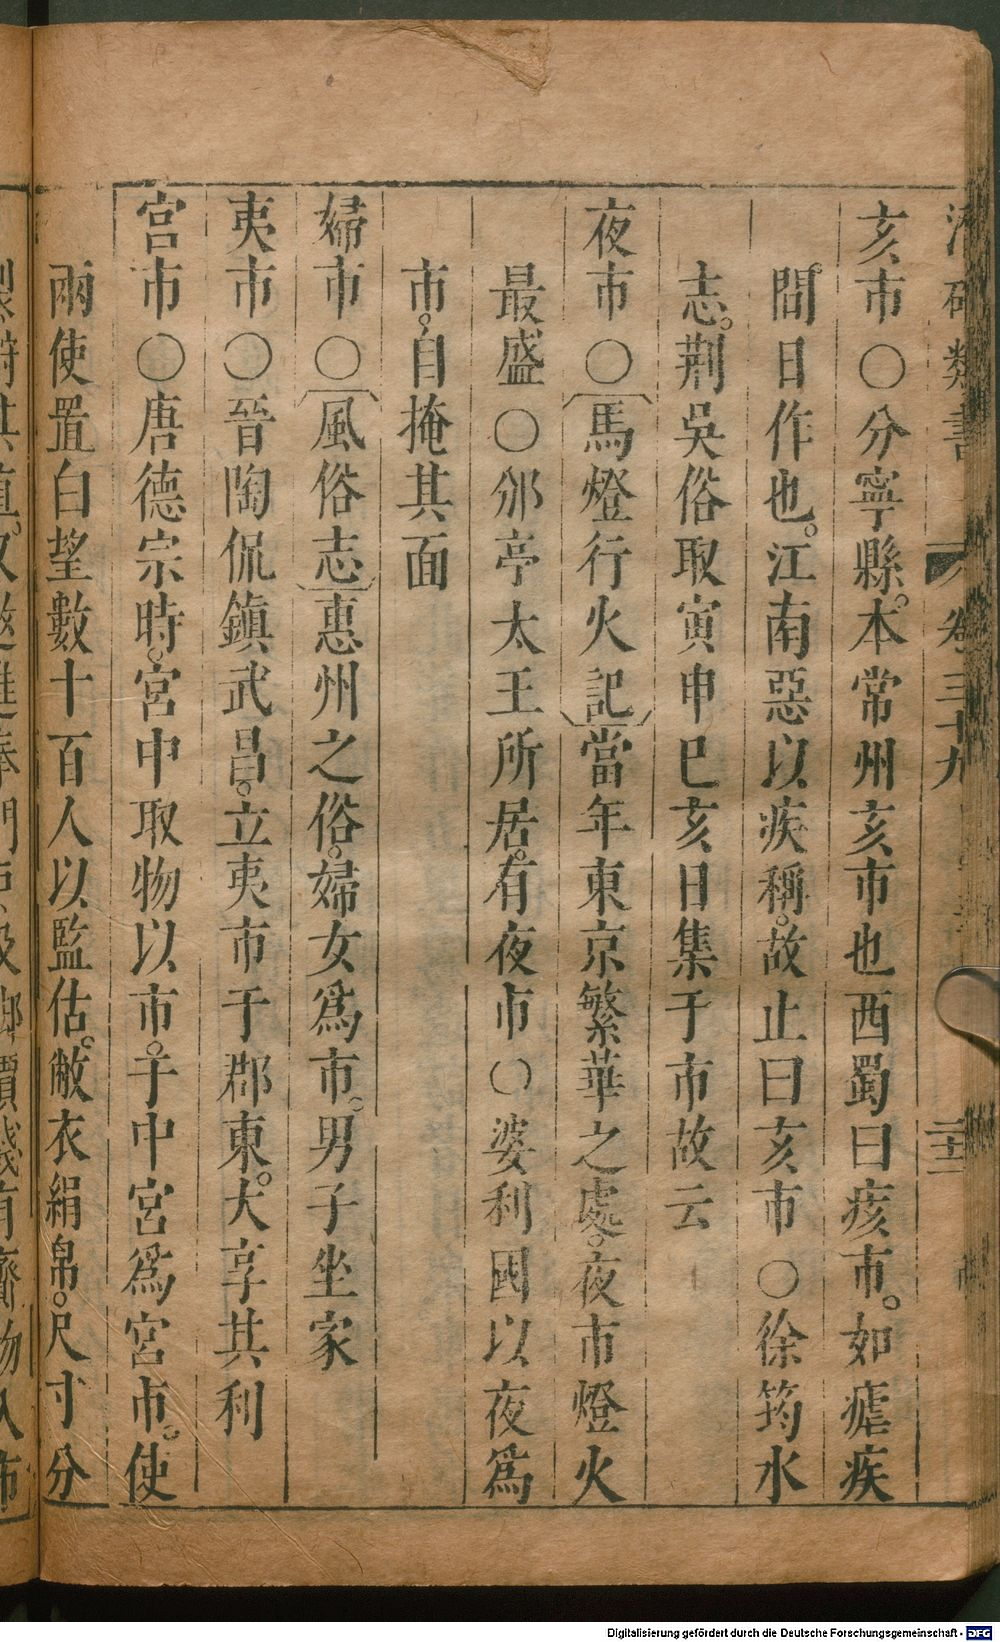 類書 卷三十九 二十二
亥市〇分寧縣。本常州亥市也西蜀曰痎市。如瘧疾
間日作也。江南惡以疾稱。故止曰亥市〇徐筠水
志。荆吳俗取寅申巳亥日集于市故云
夜市〇馬燈行火記當年東京繁華之處。夜市燈火
最盛〇邠亭太王所居。有夜市〇婆利國以夜爲
市。自掩其面
婦市〇風俗志惠州之俗。婦女爲市。男子坐家
夷市〇晉陶侃鎮武昌。立夷市于郡東。大享其利
宮市〇唐德宗時。宮中取物以市。于中宮爲宮市。使
兩使置白望數十百人以監估。敝衣絹帛。尺寸分
Digitalisierung gefördert durch die Deutsche Forschungsgemeinschaft - DFG